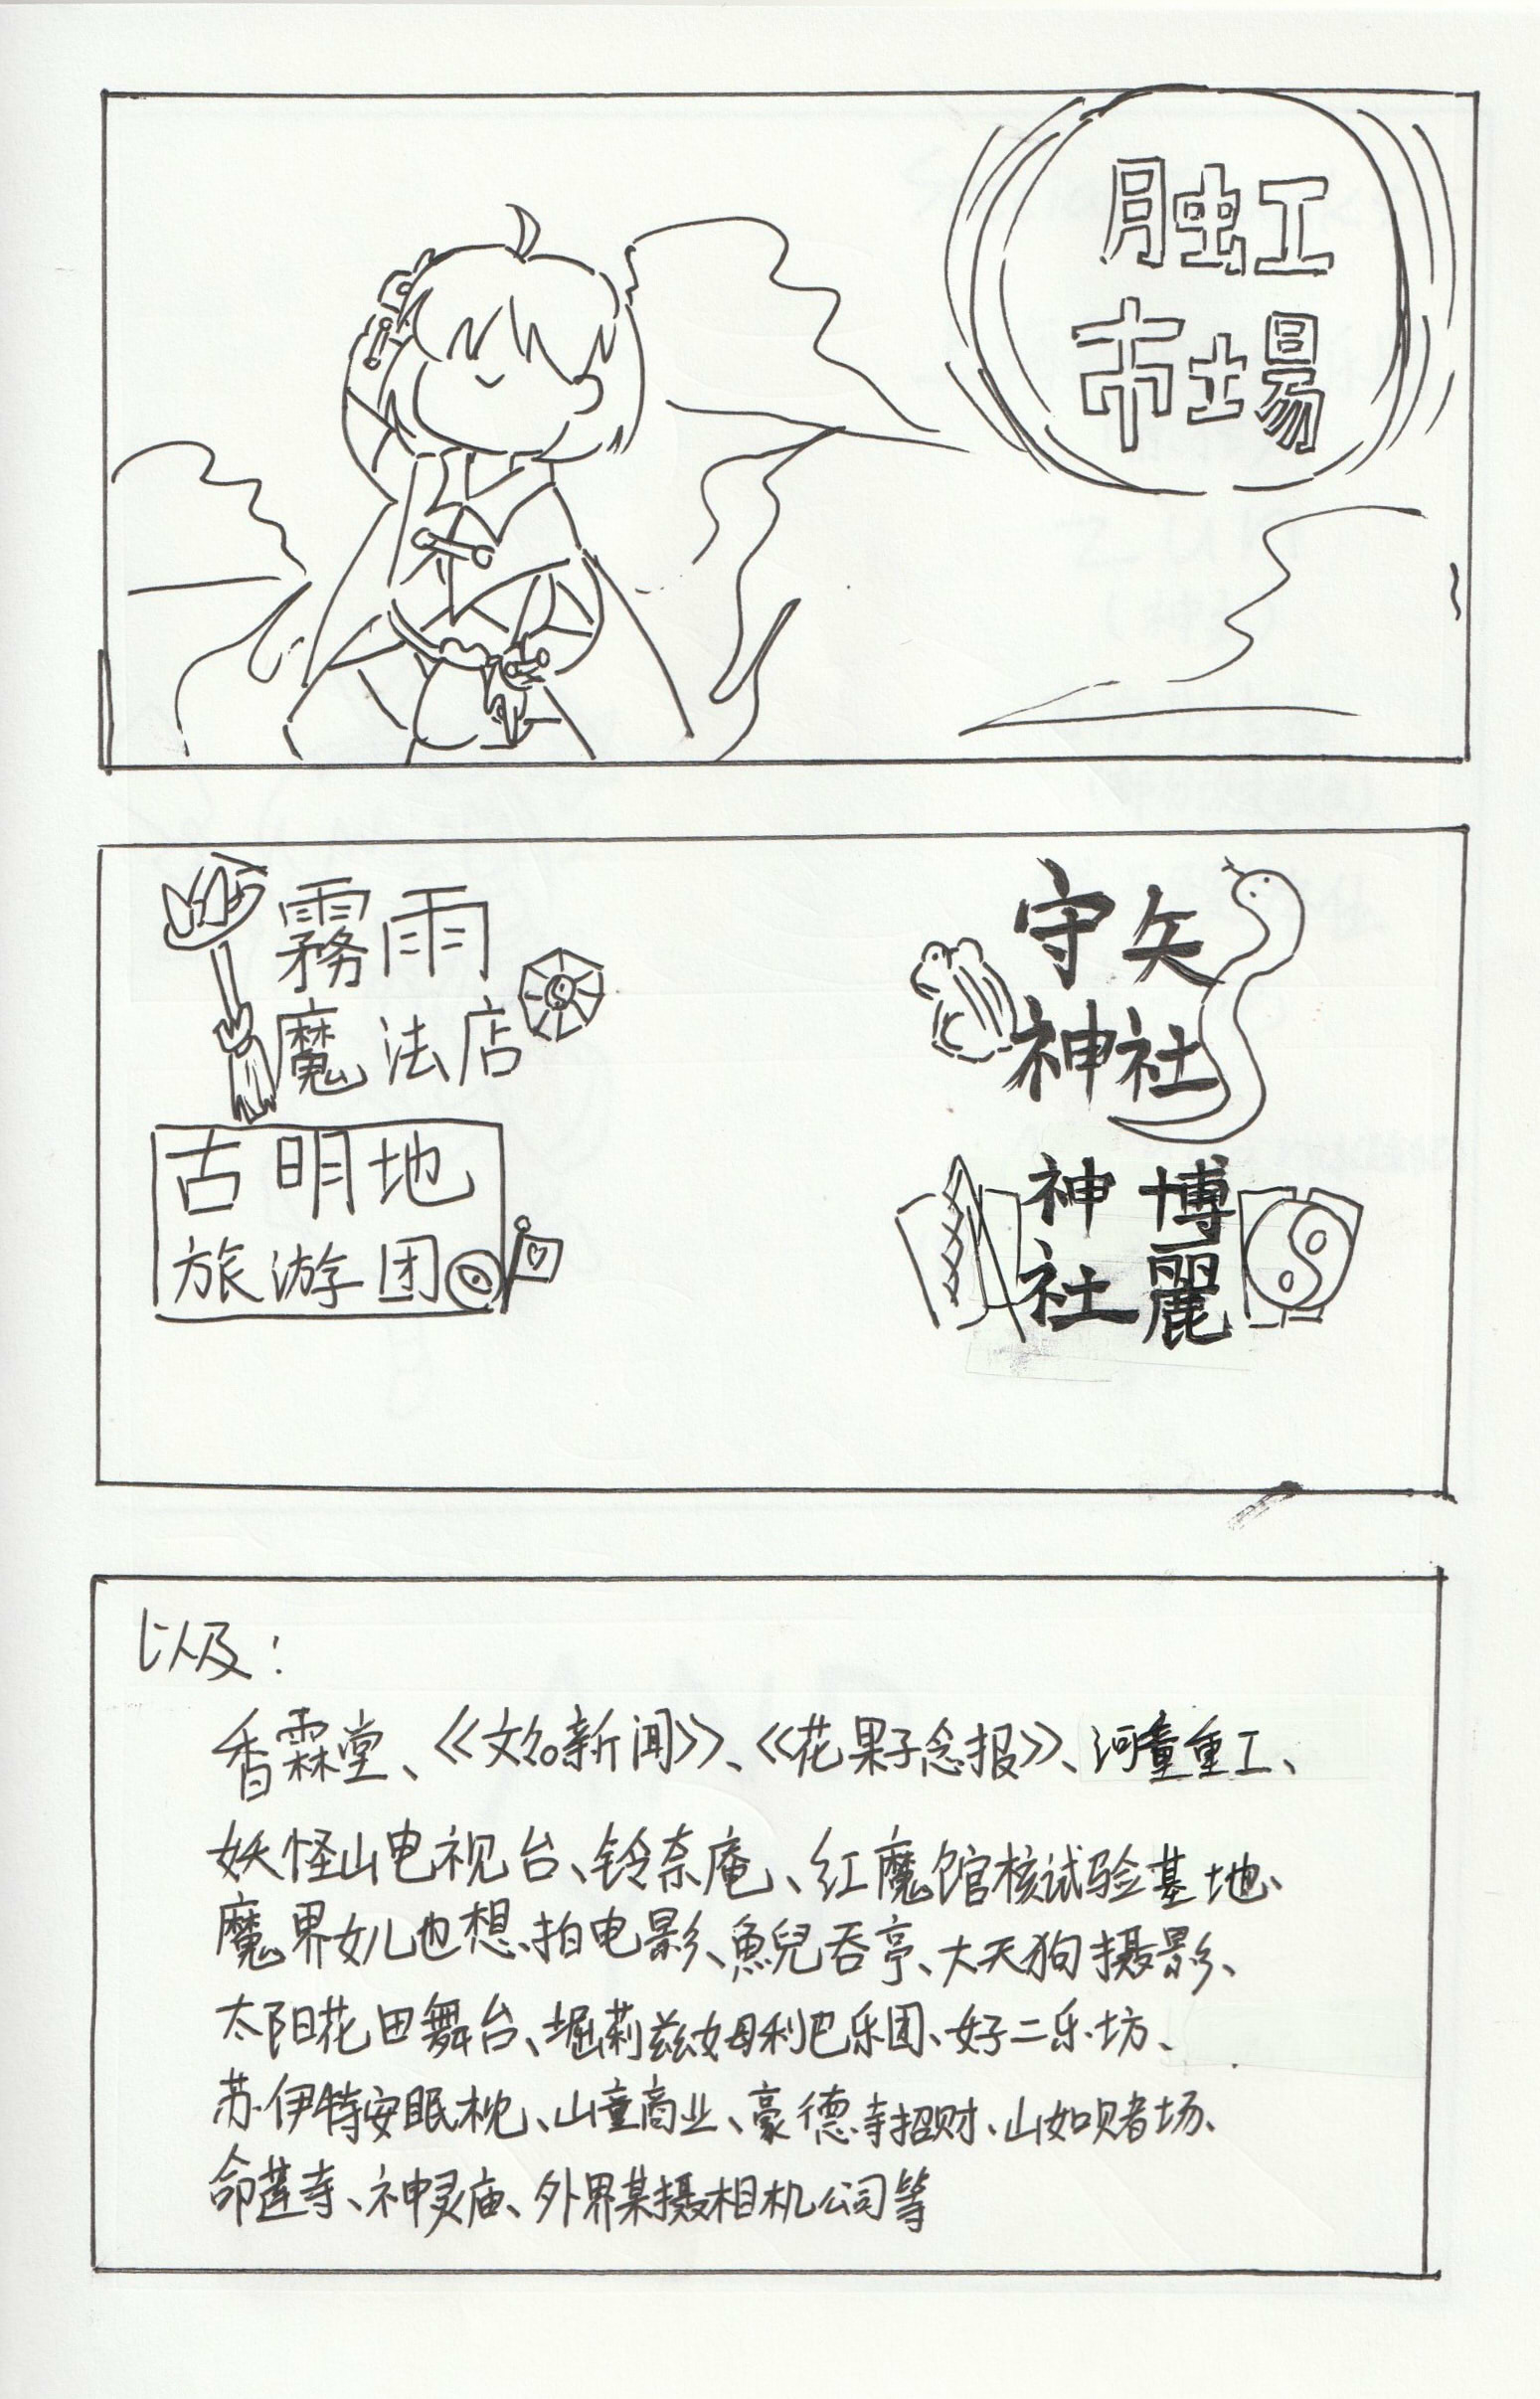 月虫工
市場
霧雨
魔法店
守矢
神社
古明地
旅游团
博麗
神社
以及:
香霖堂、《文々。新闻》、《花果子念报》、河童重工、
妖怪山电视台、铃奈庵、红魔馆核试验基地、
魔界女儿也想拍电影、魚兒吞亭、大天狗摄影、
太阳花田舞台、堀莉兹姆利巴乐团、好二乐坊、
苏伊特安眠枕、山童商业、豪德寺招财、山如赌场、
命莲寺、神灵庙、外界某摄相机公司等